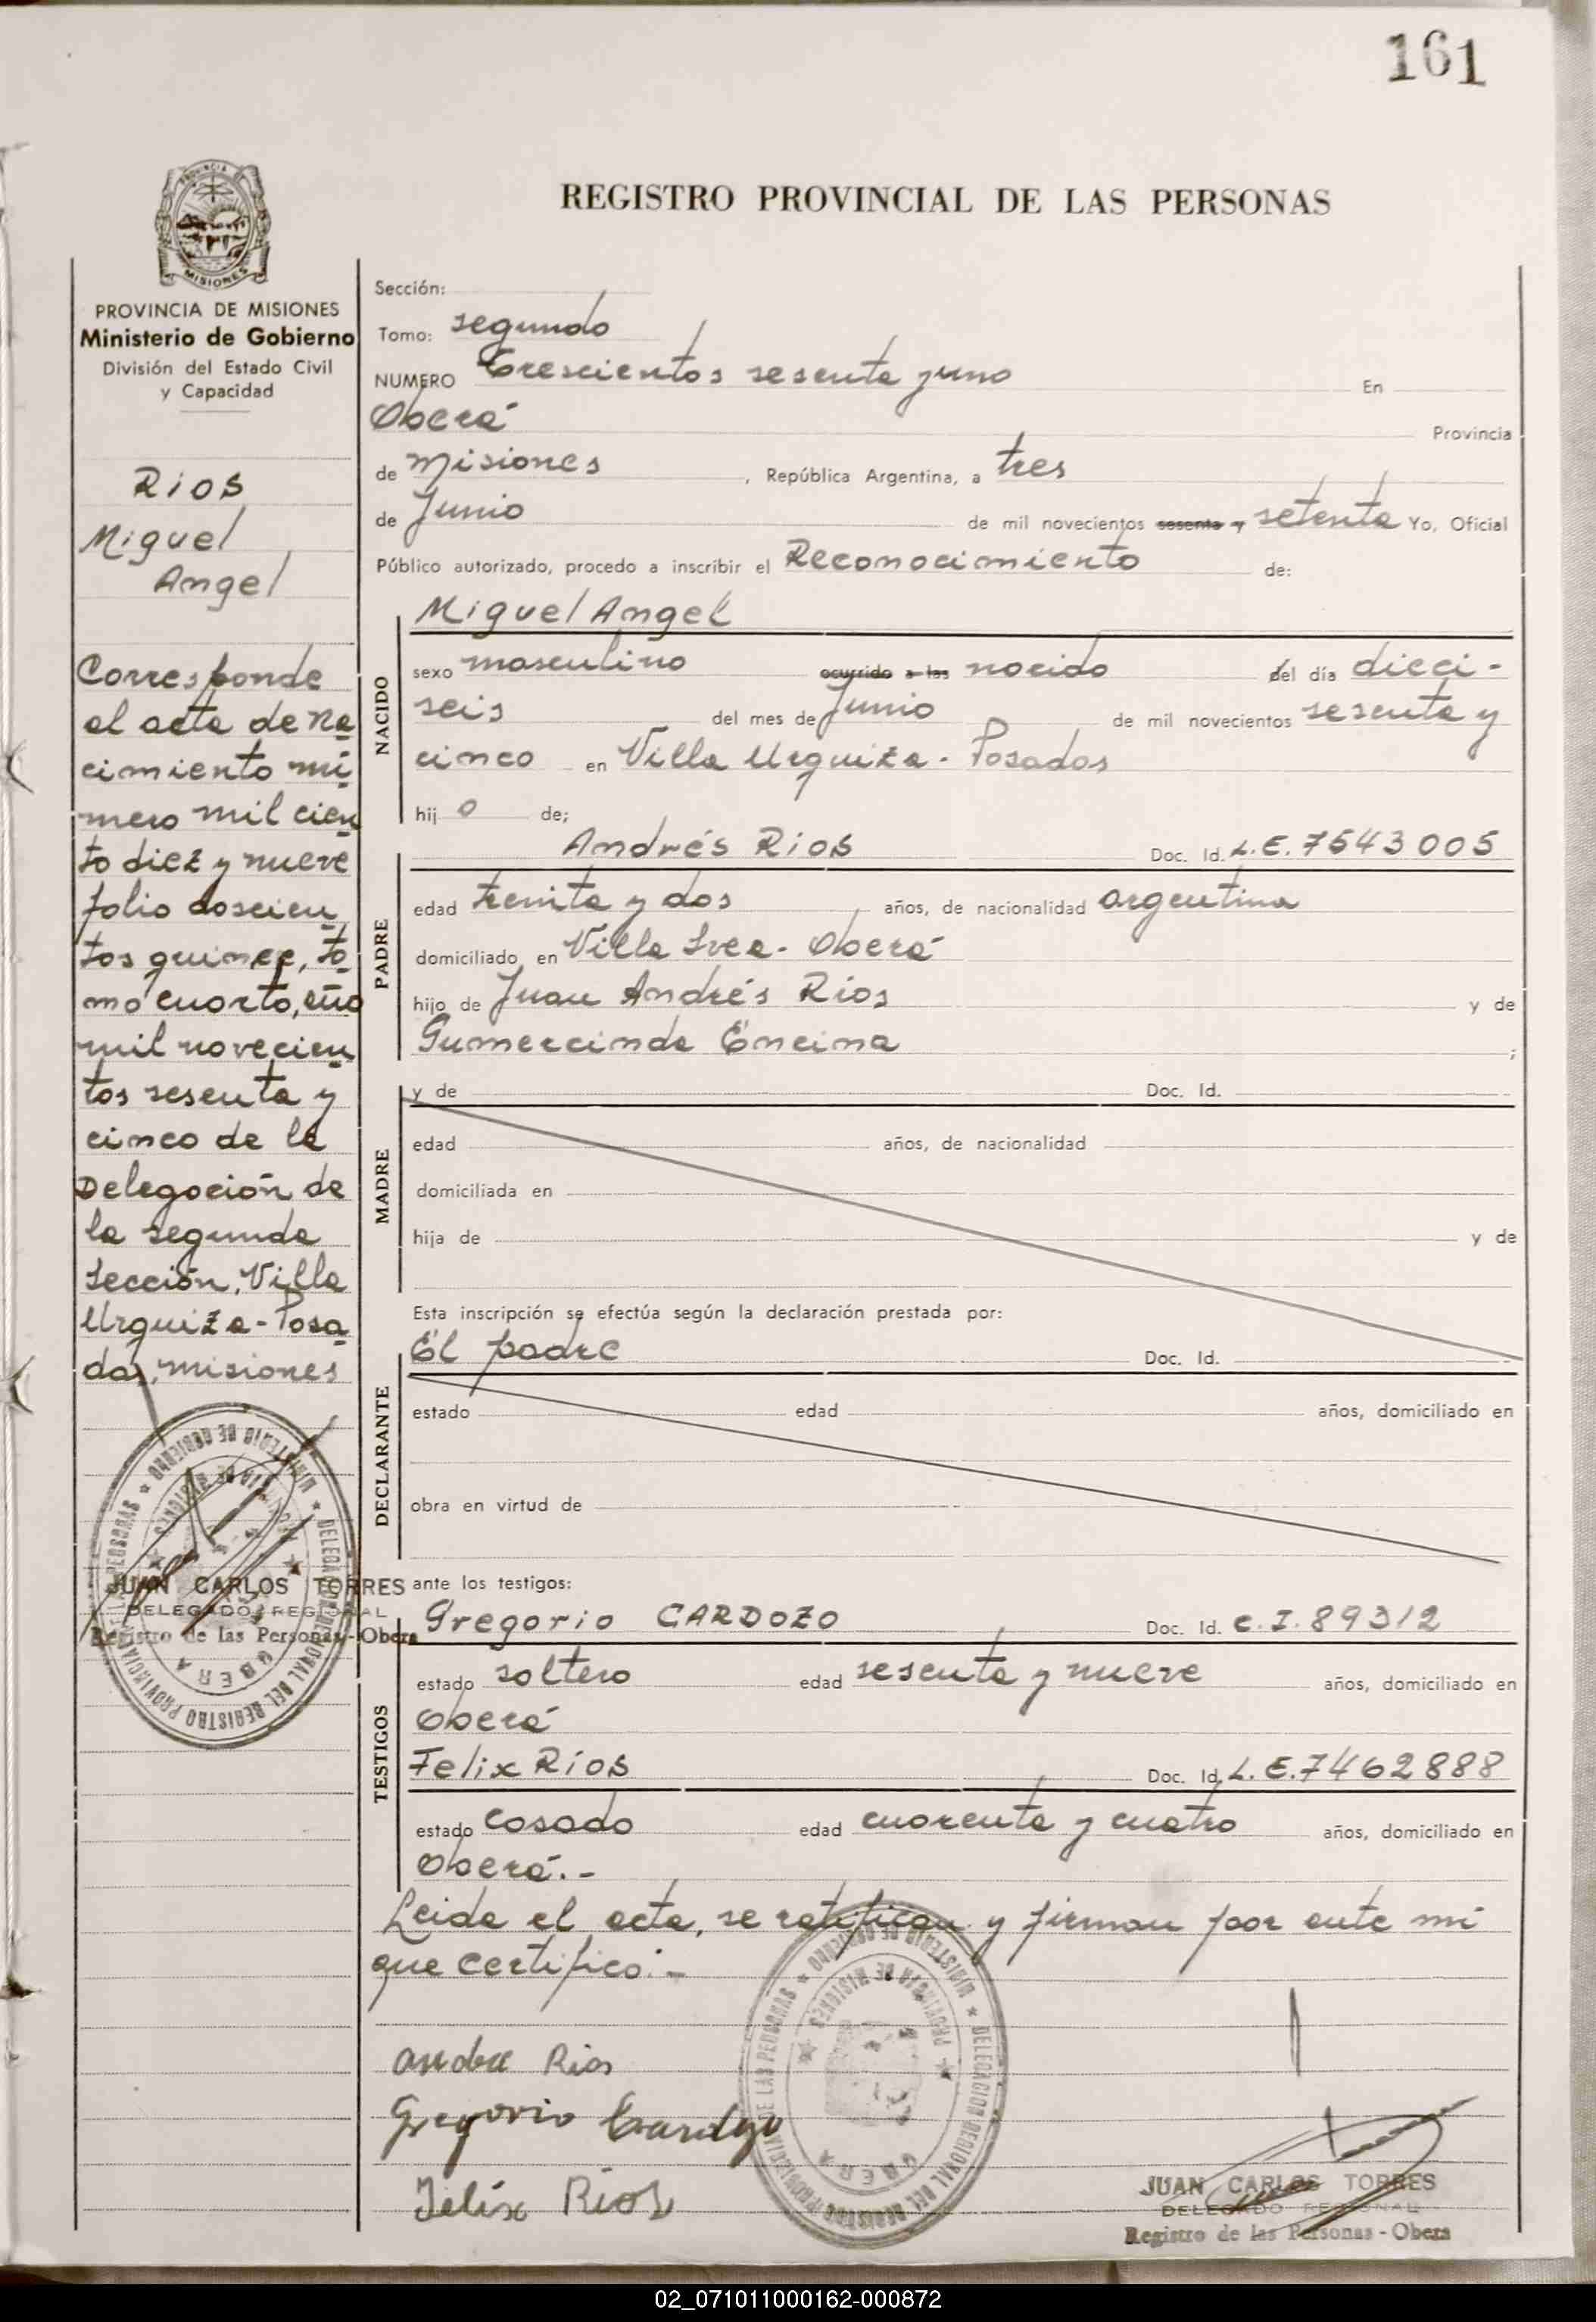 161
REGISTRO PROVINCIAL DE LAS PERSONAS
MISIONES
PROVINCIA DE MISIONES
Ministerio de Gobierno
División del Estado Civil
y Capacidad
RIOS
Miguel
Angel
Corresponde
al acta de na
cimiento nú
mero mil cien
to diez y nueve
folio doscien
tos quince, to
mo cuarto, año
mil novecien
tos sesenta y
cinco de la
Delegación de
la segunda
Sección, Villa
Urquiza - Posa
das, misiones
JUAN CARLOS TORRES
DELEGADO REGIONAL
Registro de las Personas - Obera
Sección:
Tomo: segundo
NUMERO Trescientos sesenta y uno En
Oberá Provincia
de Misiones, República Argentina, a tres
de Junio de mil novecientos sesenta y setenta Yo, Oficial
Público autorizado, procedo a inscribir el Reconocimiento de:
Miguel Angel
NACIDO
sexo masculino ocurrido a las nacido del día dieci-
seis del mes de Junio de mil novecientos sesenta y
cinco en Villa Urquiza - Posadas
hijo de;
Andrés Rios Doc. Id. L.E. 7543005
PADRE
edad treinta y dos años, de nacionalidad argentina
domiciliado en Villa Svea - Oberá
hijo de Juan Andrés Rios y de
Gumercinda Encina ;
MADRE
y de Doc. Id.
edad años, de nacionalidad
domiciliada en
hija de y de
Esta inscripción se efectúa según la declaración prestada por:
El padre Doc. Id.
DECLARANTE
estado edad años, domiciliado en
obra en virtud de
ante los testigos:
Gregorio CARDOZO Doc. Id. C.I. 89312
TESTIGOS
estado soltero edad sesenta y nueve años, domiciliado en
Oberá
Felix Ríos Doc. Id. L.E. 7462888
estado casado edad cuarenta y cuatro años, domiciliado en
Oberá.-
Leida el acta, se ratifican y firman por ante mi
que certifico:-
DELEGACION REGIONAL DEL REGISTRO PROVINCIAL DE LAS PERSONAS ★ MINISTERIO DE GOBIERNO ★
PROVINCIA DE MISIONES
OBERA
Rios
Gregorio Cardozo
Felix Rios
JUAN CARLOS TORRES
DELEGADO REGIONAL
Registro de las Personas - Obera
02_071011000162-000872